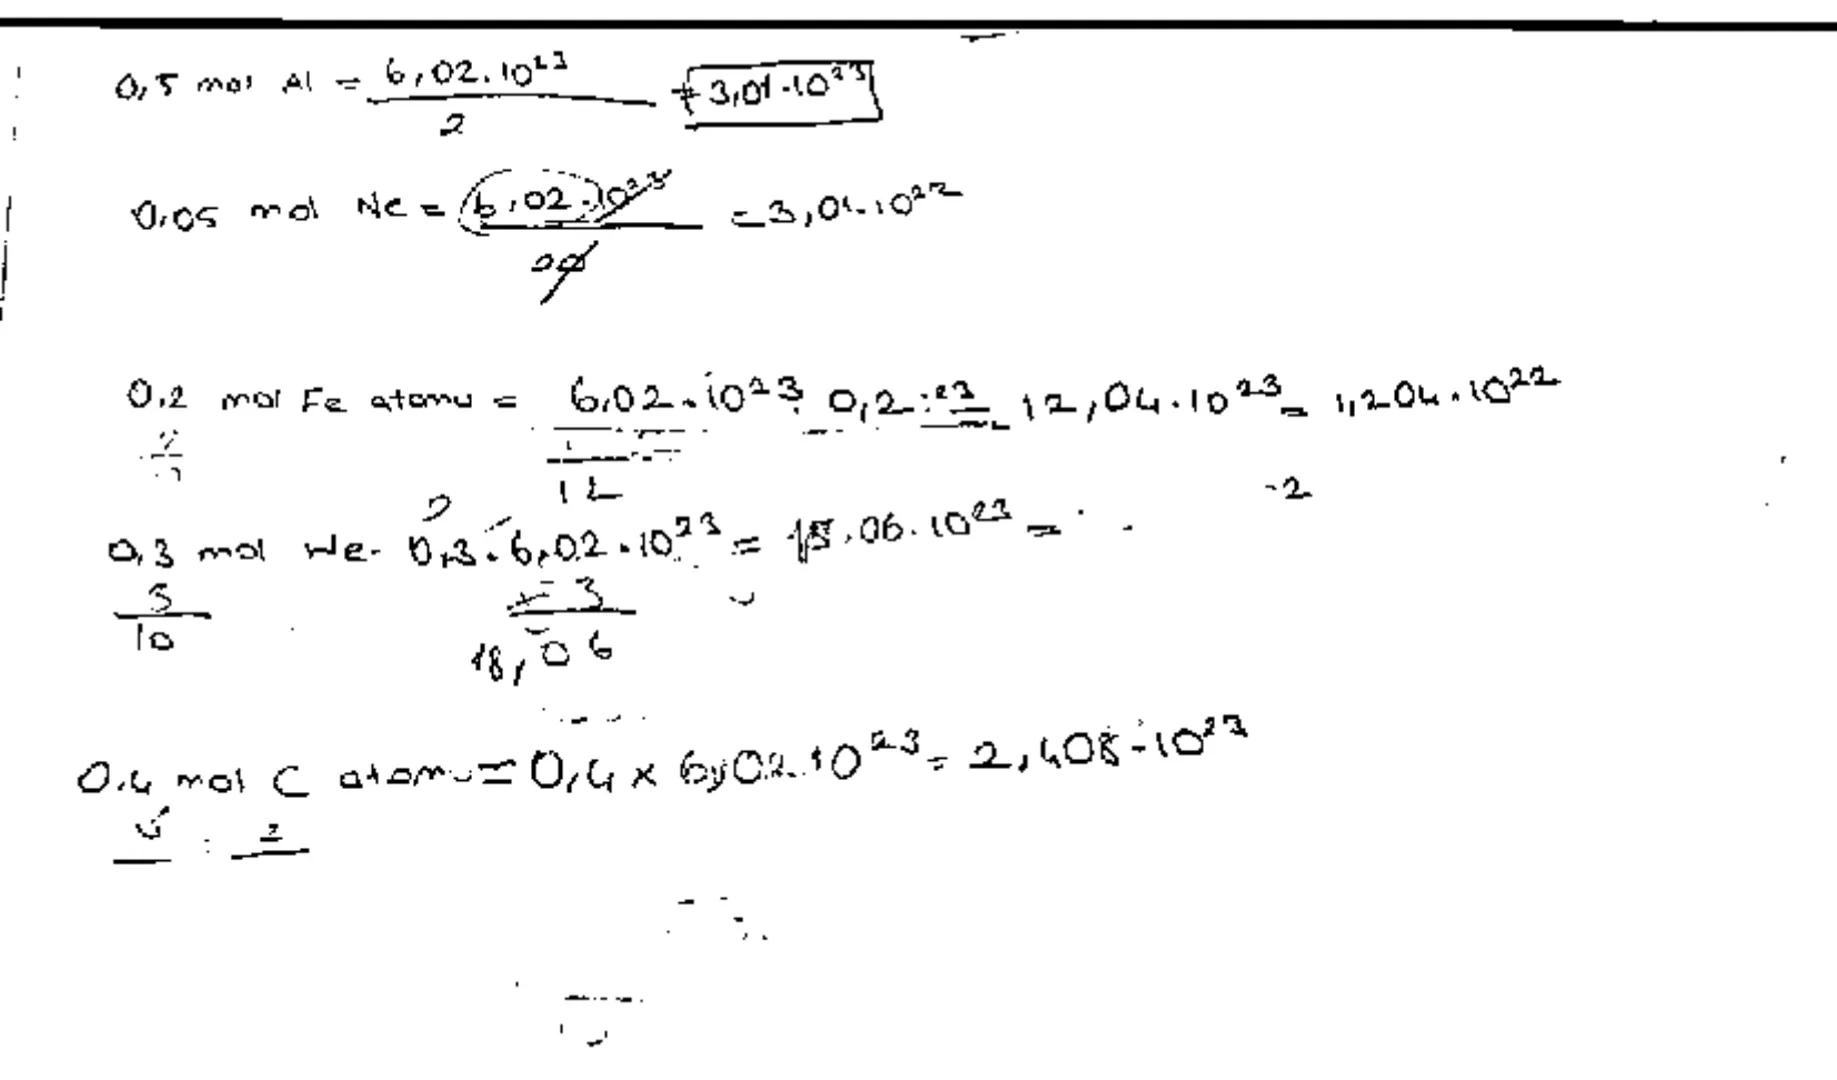 0,5 mol Al = 6,02.10²³ = 3,01.10²³
2
0,05 mol Ne = 6,02.10²³ = 3,01.10²²
20
0,2 mol Fe atomu = 6,02.10²³. 0,2 = 12,04.10²³ = 1,204.10²²
12
-2
0,3 mol He- 0,3.6,02.10²³ = 18,06.10²³ =
3
10
3
18,06
0,4 mol C atomu = 0,4 x 6,02.10²³ = 2,408.10²³